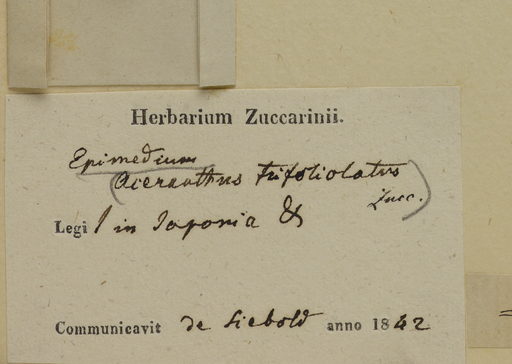 Herbarium Zuccarinii.
Epimedium
(Aceranthus trifoliolatus
Zucc.)
Legi in Japonia &
Communicavit de Siebold anno 1842